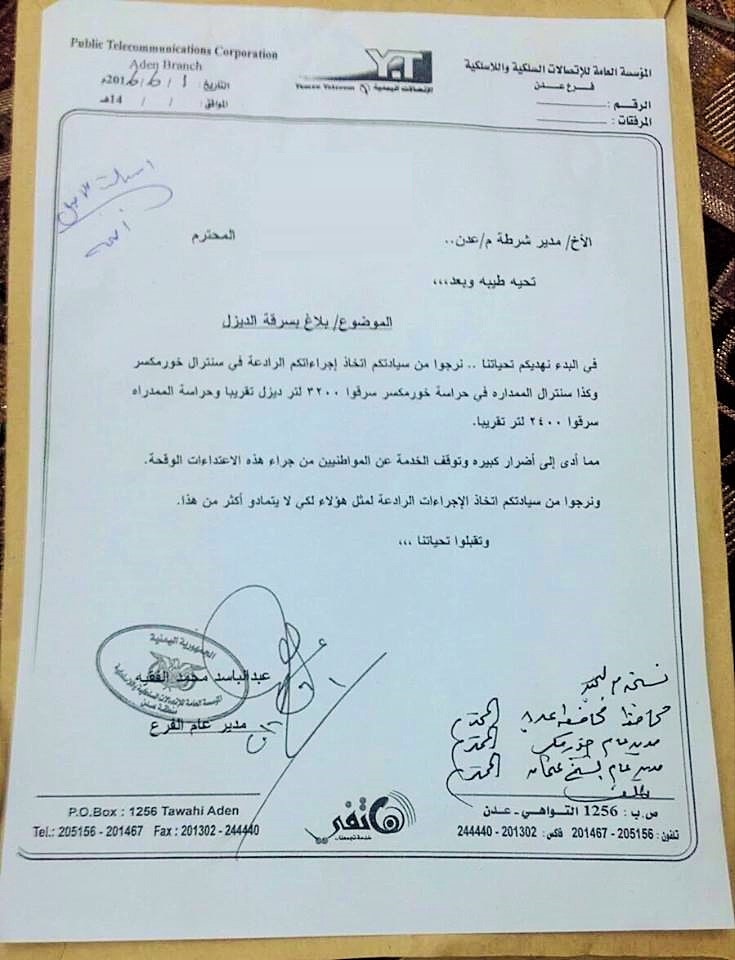 Public Telecommunications Corporation
Aden Branch
التاريخ : 1 / 6 / 2016م
الموافق : / / 14هـ
Y.T
Yemen Telecom
الإتصالات اليمنية
المؤسسة العامة للإتصالات السلكية واللاسلكية
فرع عدن
الرقم :
المرفقات :
الأخ/ مدير شرطة م/عدن.. المحترم
تحيه طيبه وبعد،،،
الموضوع/ بلاغ بسرقة الديزل
في البدء نهديكم تحياتنا .. نرجوا من سيادتكم اتخاذ إجراءاتكم الرادعة في سنترال خورمكسر
وكذا سنترال الممداره في حراسة خورمكسر سرقوا ٣٢٠٠ لتر ديزل تقريبا وحراسة الممدراه
سرقوا ٢٤٠٠ لتر تقريبا.
مما أدى إلى أضرار كبيره وتوقف الخدمة عن المواطنيين من جراء هذه الاعتداءات الوقحة.
ونرجوا من سيادتكم اتخاذ الإجراءات الرادعة لمثل هؤلاء لكي لا يتمادو أكثر من هذا.
وتقبلوا تحياتنا ،،،
الجمهورية اليمنية
المؤسسة العامة للإتصالات السلكية واللاسلكية
منطقة عدن
عبدالباسد محمد الفقيه
مدير عام الفرع
نسخة م
محافظ محافظة عدن المحترم
مدير عام خورمكسر المحترم
مدير عام الشيخ عثمان المحترم
P.O.Box : 1256 Tawahi Aden
Tel.: 205156 - 201467 Fax : 201302 - 244440
خدمة تجمعنا
ص.ب : 1256 التواهي - عدن
تلفون : 205156 - 201467 فاكس : 201302 - 244440